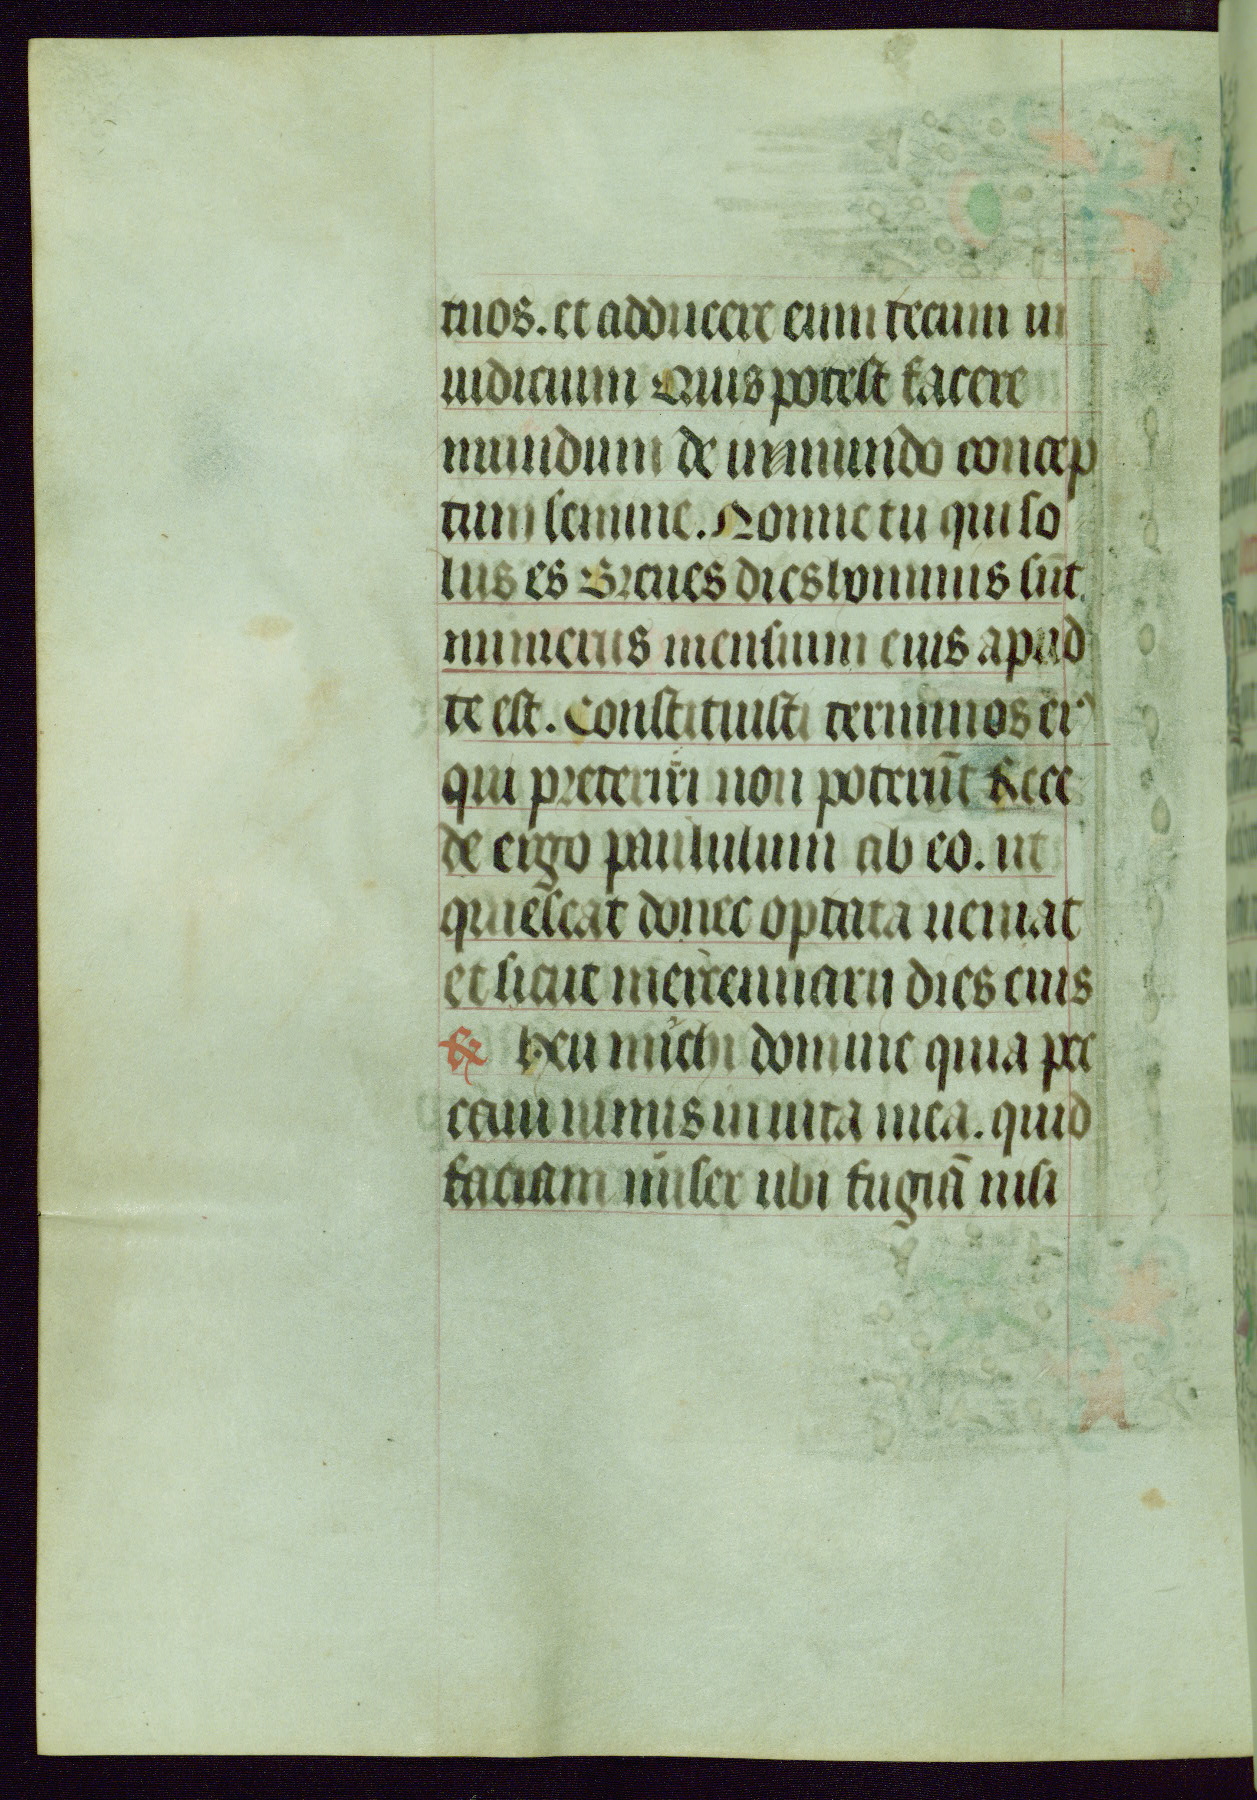 tuos. et adducere eum tecum in
iudicium Quis potest facere
mundum de inmundo concep
tum semine. Nonne tu qui so
lus es Breues dies hominis sūt
numerus mensium eius apud
te est. Constituisti terminos ei'
qui preteriri non poterūt Rece
de ergo paululum ab eo. ut
quiescat donec optata ueniat
et sicut mercennarii dies eius
℟ Heu michi domine quia pec
caui nimis in uita mea. quid
faciam miser ubi fugiā nisi